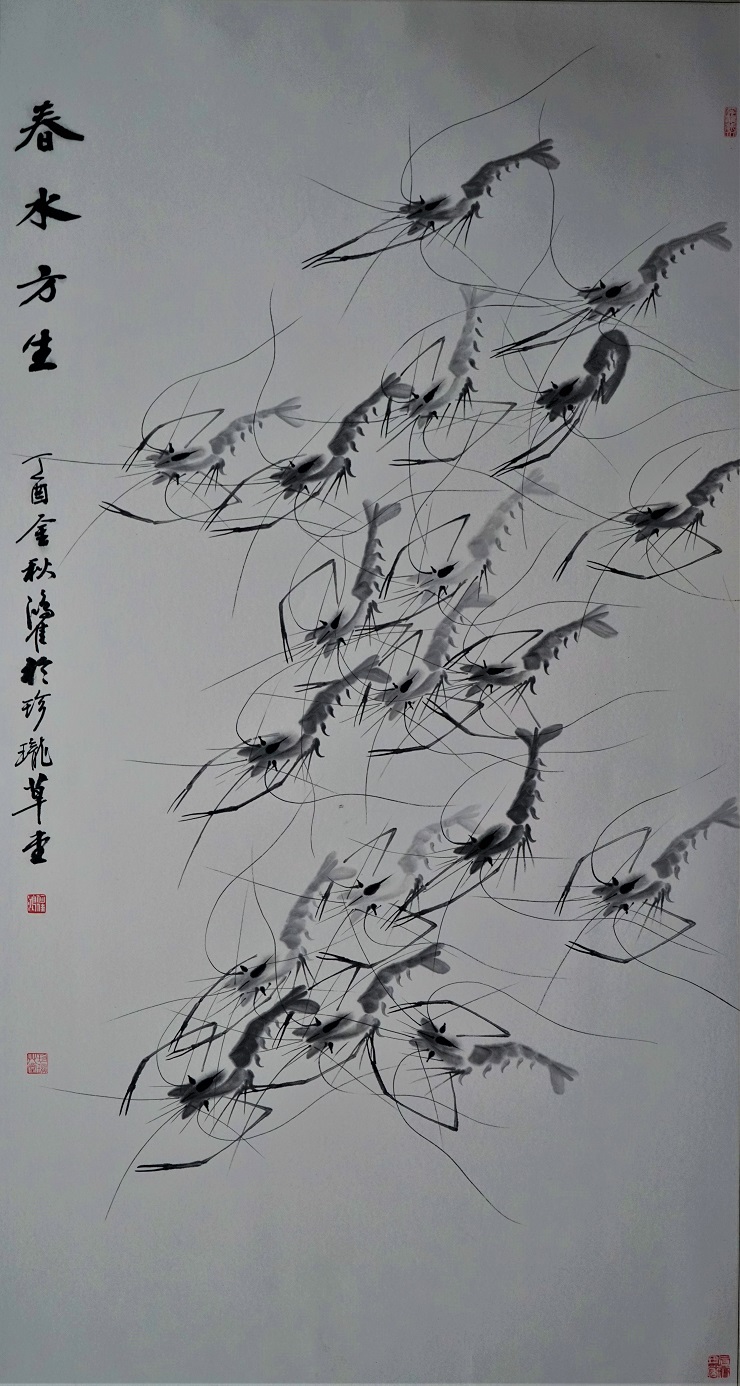 春水方生
丁酉金秋鴻雀於珍瓏草堂